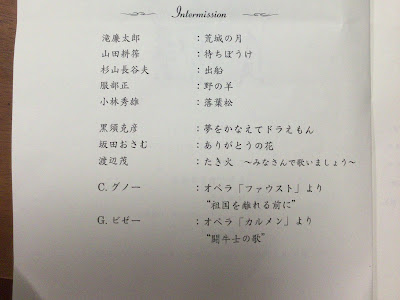 Intermission
滝廉太郎 :荒城の月
山田耕筰 :待ちぼうけ
杉山長谷夫 :出船
服部正 :野の羊
小林秀雄 :落葉松
黒須克彦 :夢をかなえてドラえもん
坂田おさむ :ありがとうの花
渡辺茂 :たき火 ~みなさんで歌いましょう~
C. グノー :オペラ「ファウスト」より
“祖国を離れる前に”
G. ビゼー :オペラ「カルメン」より
“闘牛士の歌”